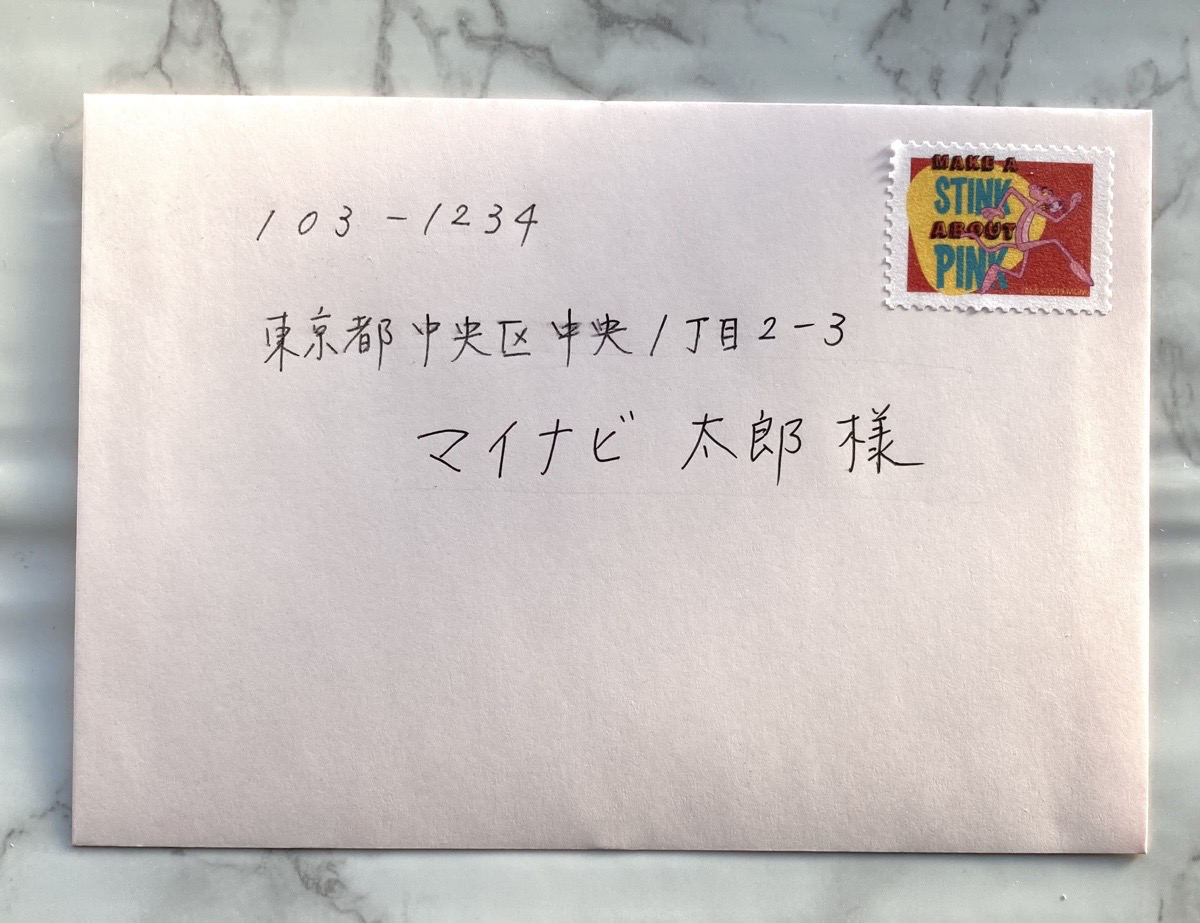 103-1234
東京都中央区中央1丁目2-3
マイナビ 太郎 様
MAKE A
STINK
ABOUT
PINK